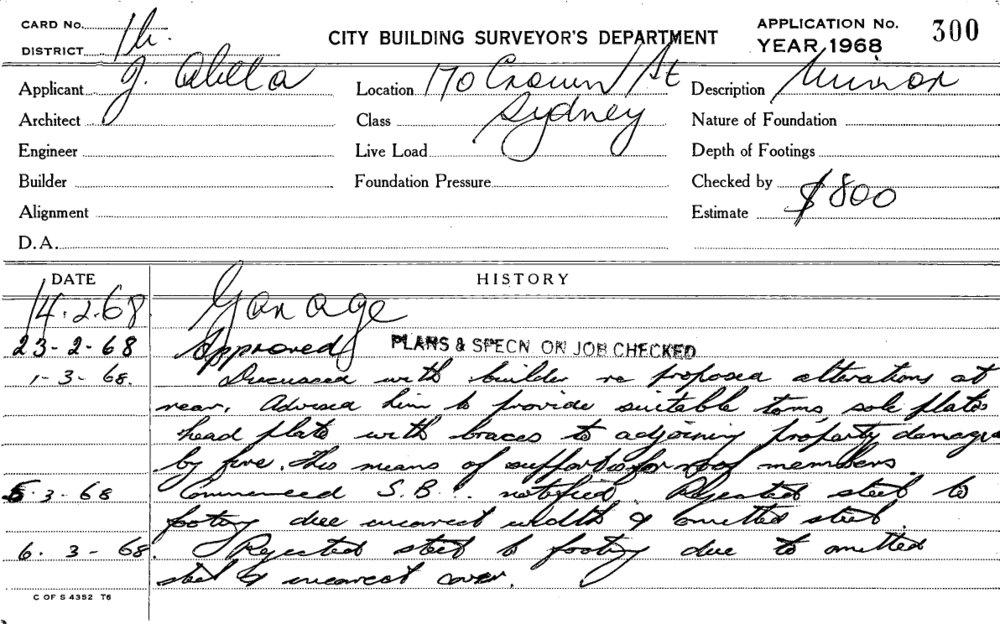 CARD No.
DISTRICT 1h.
CITY BUILDING SURVEYOR'S DEPARTMENT
APPLICATION No. 300
YEAR 1968
Applicant J. Abella
Location 170 Crown St
Description Minor
Architect
Class Sydney
Nature of Foundation
Engineer
Live Load
Depth of Footings
Builder
Foundation Pressure
Checked by
Alignment
Estimate $800
D.A.
DATE HISTORY
14.2.68 Garage
23-2-68 Approved PLANS & SPECN ON JOB CHECKED
1-3-68. Discussed with builder re proposed alterations at
rear. Advised him to provide suitable toms sole plates
head plate with braces to adjoining property damaged
by fire. This means of support is for roof members.
5.3-68 Commenced S.B... notified. Rejected steel to
footing due incorrect width & omitted steel.
6.3-68. Rejected steel to footing due to omitted
steel & incorrect cover.
C OF S 4352 T6